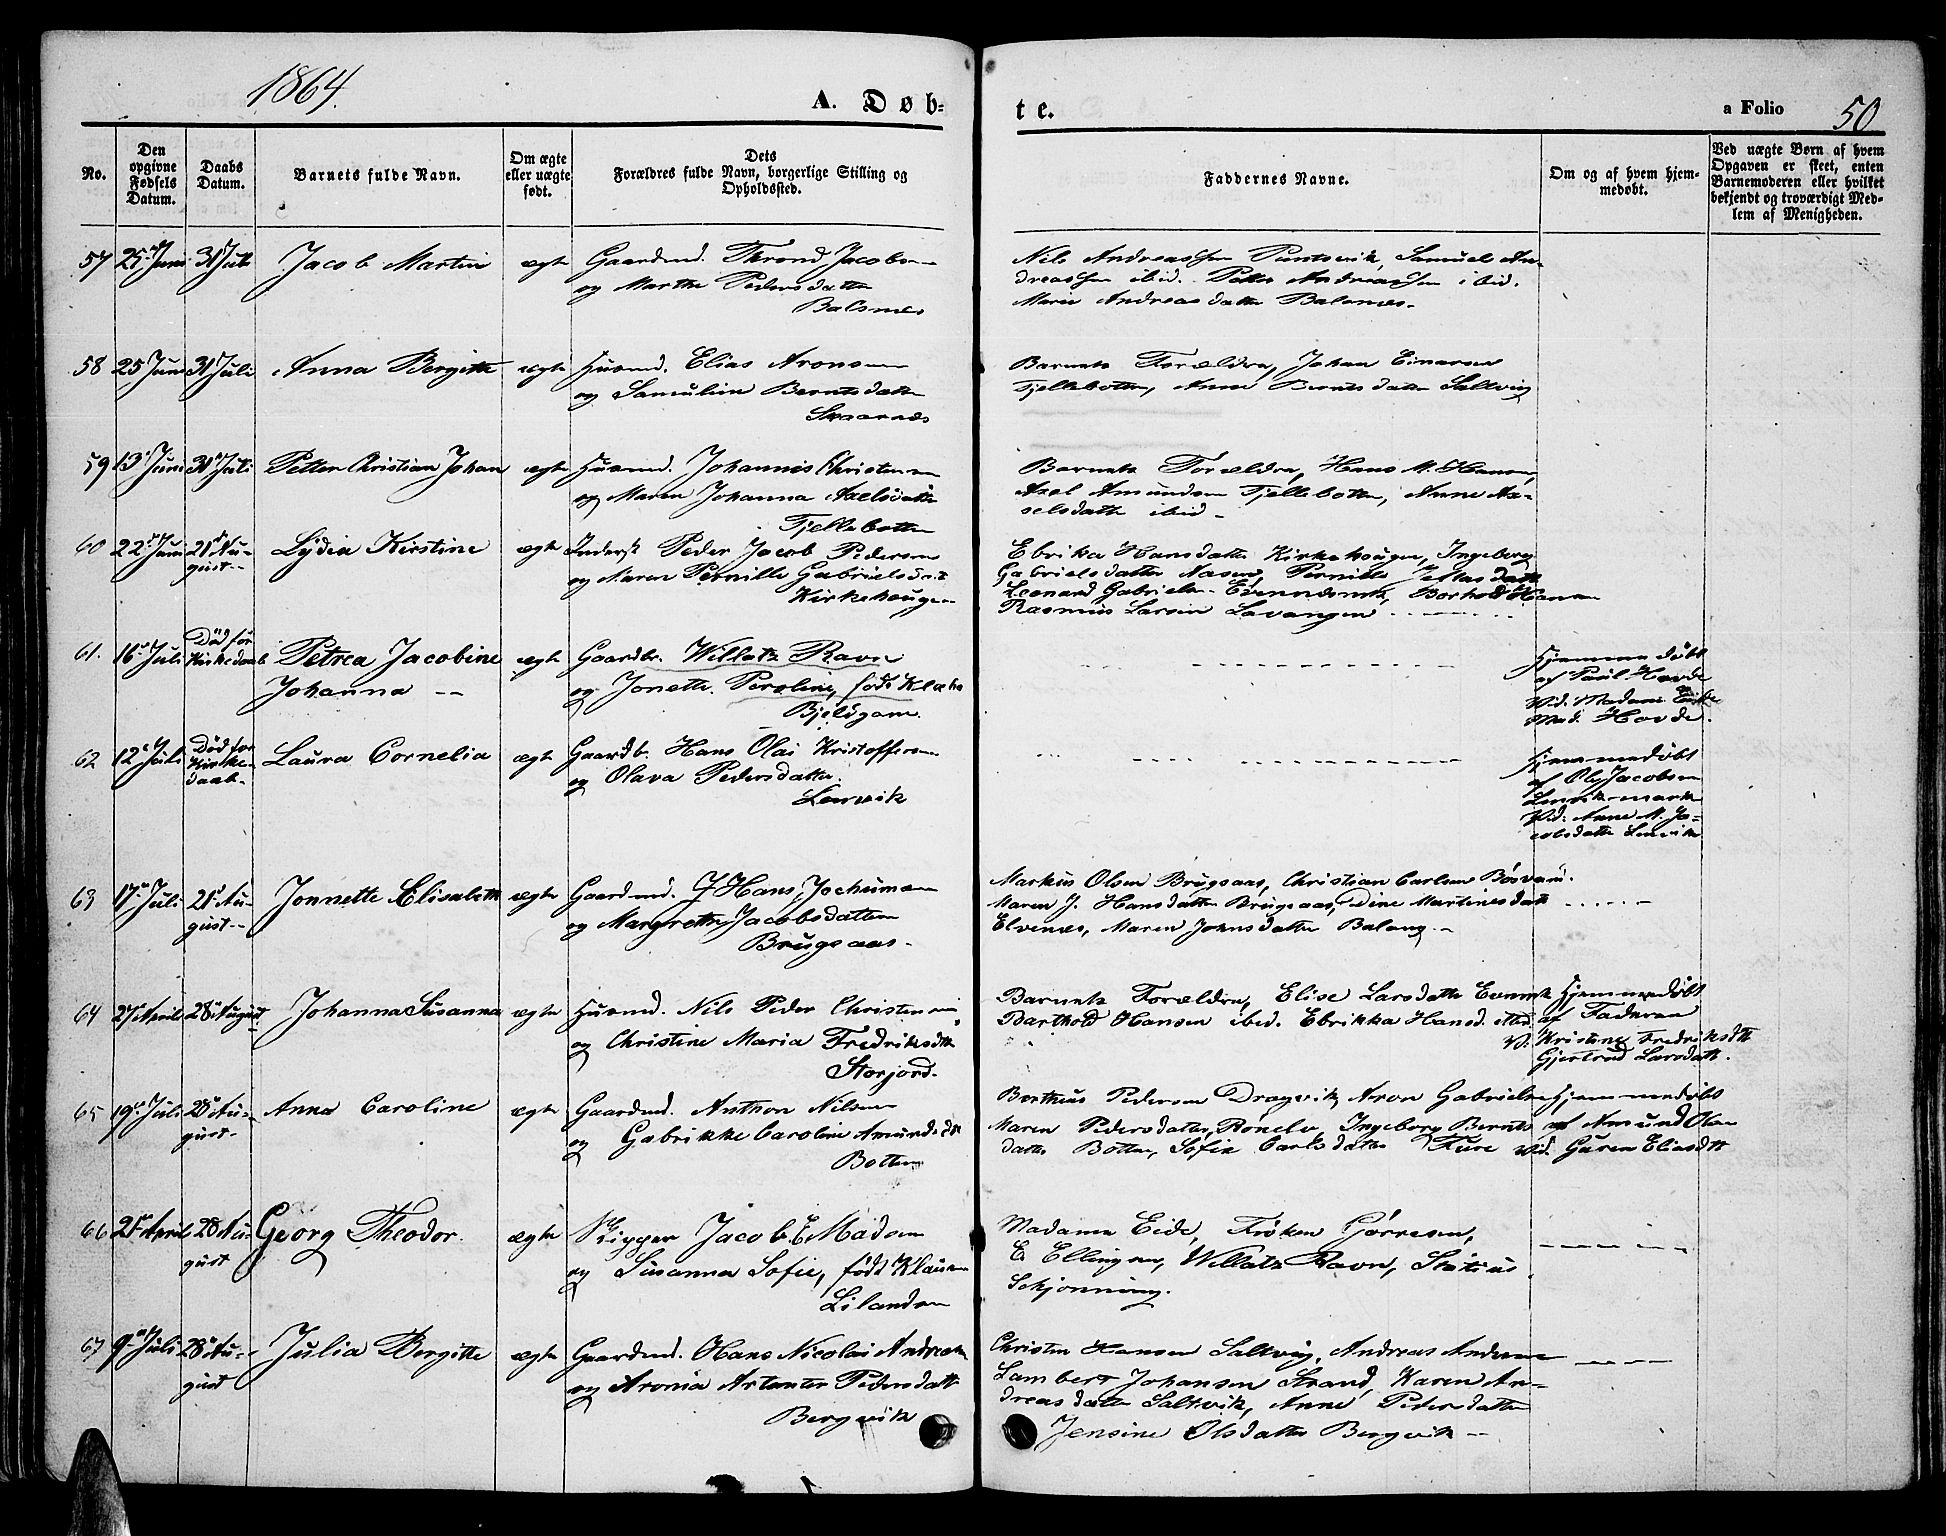 1864.
A. Døb-
te.
a Folio 50
No.
Den opgivne Fødsels Datum.
Daabs Datum.
Barnets fulde Navn.
Om ægte eller uægte født.
Dets Forældres fulde Navn, borgerlige Stilling og Opholdssted.
Faddernes Navne.
Om og af hvem hjemmedøbt.
Ved uægte Børn af hvem Opgaven er skeet, enten Barnemoderen eller hvilket bekjendt og troværdigt Medlem af Menigheden.
57 Juni 31 Juli Jacob Martin ægte Gaardmd. Thrond Jacobsen
og Marthe Pedersdatter
Balsnes
Nils Andreassen Samuel An-
dreassen ibid. Petter Andreassen ibid.
Marie Andreasdatter Balsnes.
58 25 Juni 31 Juli Anna Bergitte ægte Husmd. Elias Aronsen
og Berntsdatter
Skaarnes
Barnets Forældre, Johan Einarsen
Fjelkbotten, Anne Berntsdatter Saltvig
59 13 Juni 31 Juli Petter Christian Johan ægte Husmd. Johannis Christensen
og Maren Johanna Axelsdatter
Fjellbotten
Barnets Forældre, Hans M. Hansen,
Axel Amundsen Fjelkbotten, Anne Ax-
selsdatter ibid
60 22 Juni 21 Au-
gust Lydia Kirstine ægte Inderst Peder Jacob Pedersen
og Maren Pernille Gabrielsdtr
Kirkehaugen
Ebrika Hansdatter Kirkehougen, Ingeborg
Gabrielsdatter Pernille datt
Leonard Gabrielsen Evenskr Hansen
Rasmus Larsen Lavangen
61. 16 Juli Død før
Kirkedaab Petrea Jacobine
Johanna ægte Gaardbr. Willatz Ravn
og Jonette Peroline, født Klæbo
Bjeldgam.
Hjemmedøbt
af Paul Hovde
Vid. Madame Eide
Mad. Hovde.
62 12 Juli Død før
Kirke-
daab Laura Cornelia ægte Gaardb. Hans Olai Kristoffersen
og Olava Pedersdatter.
Lenvik
Hjemmedøbt
af Ole Jacobsen
Lenvik-mark
Vid. Anne M. Ja-
cobsdatter Lenvik
63 17 Juli 21 Au-
gust Jonnette Elisabeth ægte Gaardmd. J Hans Jochumsen
og Margrethe Jacobsdatter
Brugsaas
Markus Olsen Brugsaas, Christian Carlsen
Maren J. Hansdatter Brugsaas, Dine Martinesdatt
Elvenes, Maren Johnsdatter Balang
64 27 April 28 August Johanna Susanna ægte Husmd. Nils Peder Christensen
og Christine Maria Fredriksdtt
Storjord.
Barnets Forældre, Elise Larsdatter
Barthold Hansen ibid. Ebrikka Hansd.
Hjemmedøbt
af Faderen
V. Kristine Fredriksdtt
Gjertrud Larsdatt.
65 19 Juli 28 Au-
gust Anna Caroline ægte Gaardmd. Anthon Nilsen
og Gabrikke Caroline Amundsdtt
Botten
Bertheus Pedersen Dragvik, Aron Gabrielsen
Maren Pedersdatter, Ingeborg Bernts
datter Botten, Sofie Carlsdatter
Hjemmedøbt
af Amund Olsen
Vid. Guren Eliasdtt
66 21 April 28 Au-
gust Georg Theodor. ægte Skipper Jacob E Madsen
og Susanna Sofie, født Klausen
Lilandsn
Madame Eide, Frøken Gjørresen,
E. Ellingsen, Willatz Ravn, Statius
Schjønning.
67 9 Juli 28 Au-
gust Julia Bergitte ægte Gaardmd. Hans Nicolai Andreasen
og Aronia Pedersdatt
Bergvik
Christen Hansen Saltvig, Andreas Andersen
Lambert Johansen Strand, Karen An-
dreasdatter Saltvik, Anne Petersdatter
Jensine Olsdatter Bergvik